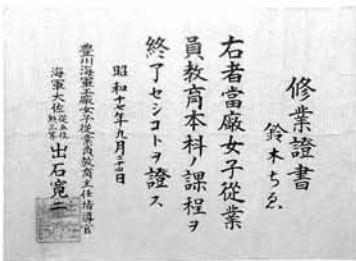 修業證書
鈴木ちゑ
右者當廠女子從業
員教育本科ノ課程ヲ
終了セシコトヲ證ス
昭和十七年九月三十日
豊川海軍工廠女子從業員教育主任指導官
海軍大佐 從五位 勲三等 出石寛二